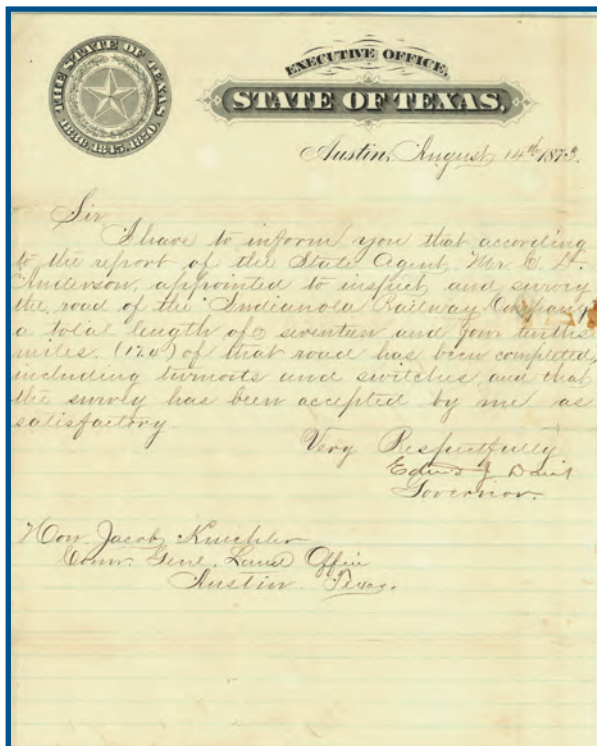 THE STATE OF TEXAS,
1836, 1845, 1870.
EXECUTIVE OFFICE,
STATE OF TEXAS,
Austin, August 14th 1873.
Sir
I have to inform you that according
to the report of the State Agent, Mr
Anderson, appointed to inspect and survey
the road of the Indianola Railway Company
a total length of seventeen and four tenths
miles. of that road has been completed,
including turnouts and switches, and that
the survey has been accepted by me as
satisfactory.
Very Respectfully
Edmd J Davis
Governor.
Hon. Jacob Kuechler
Comr. Genl. Land Office
Austin Texas.